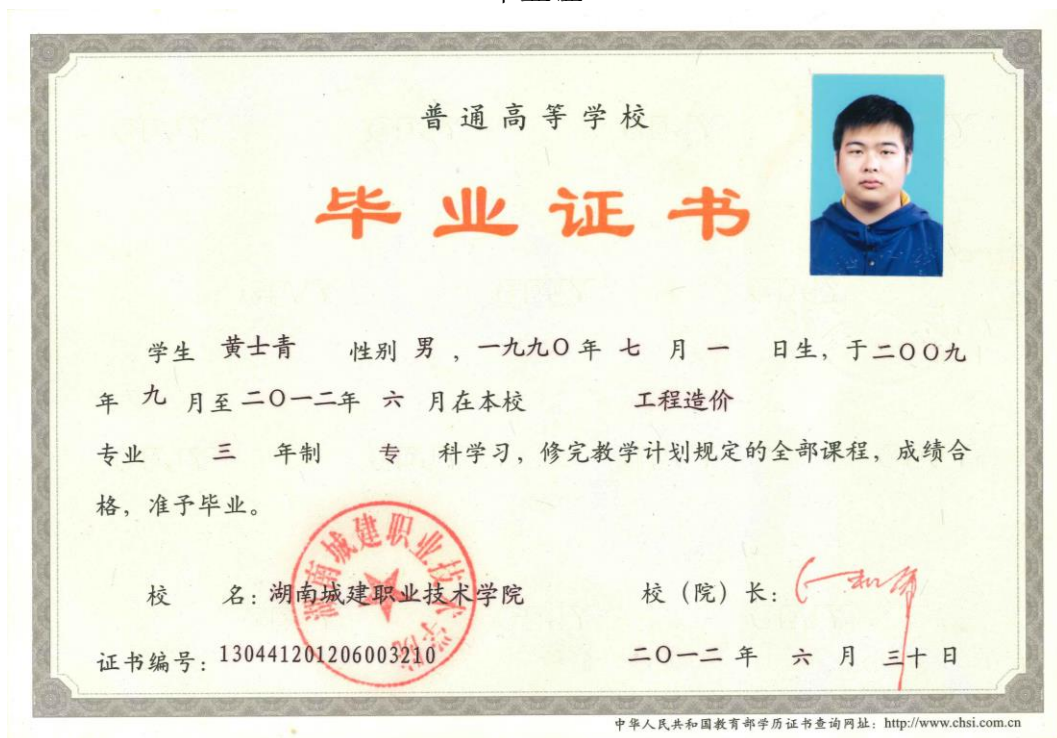 普通高等学校
毕业证书
学生 黄士青 性别 男 ，一九九〇年 七 月 一 日生，于二〇〇九
年 九 月至二〇一二年 六 月在本校 工程造价
专业 三 年制 专 科学习，修完教学计划规定的全部课程，成绩合
格，准予毕业。
湖南城建职业技术学院
校 名：湖南城建职业技术学院 校（院）长：
证书编号：130441201206003210 二〇一二 年 六 月 三十 日
中华人民共和国教育部学历证书查询网址：http://www.chsi.com.cn